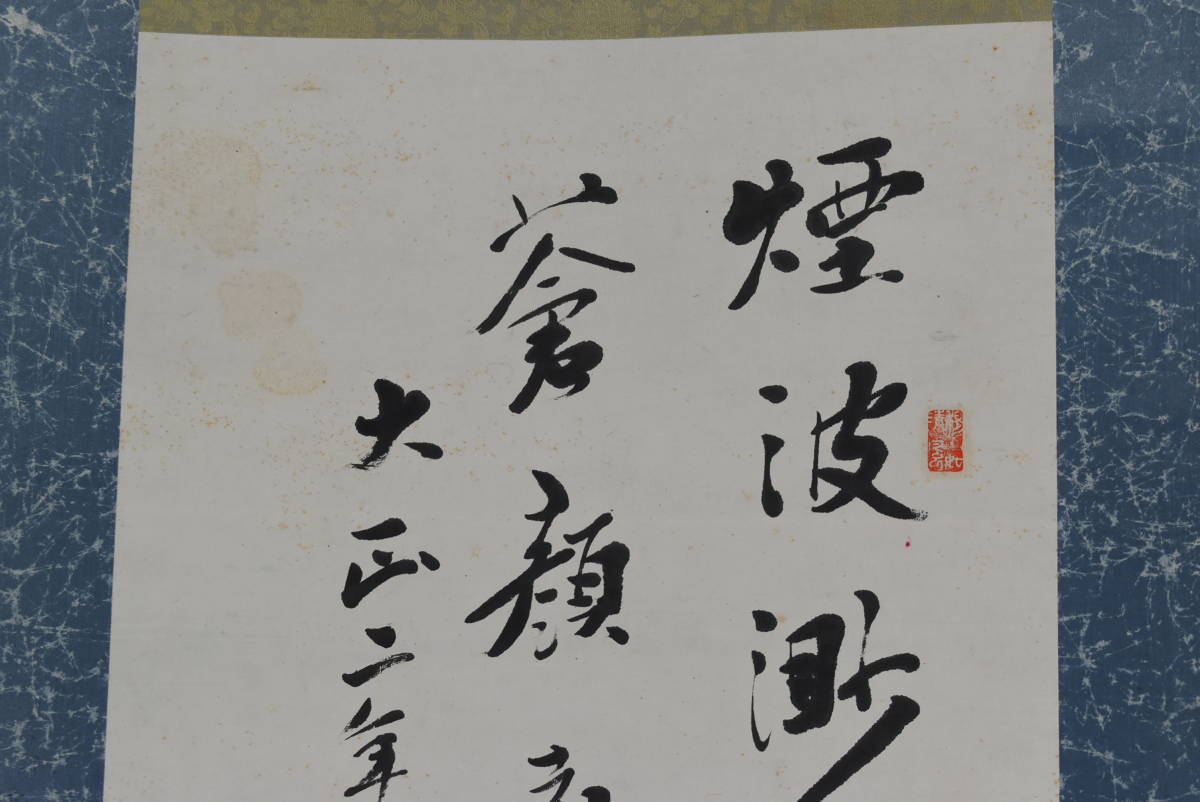 煙波渺
蒼顔
大正二年